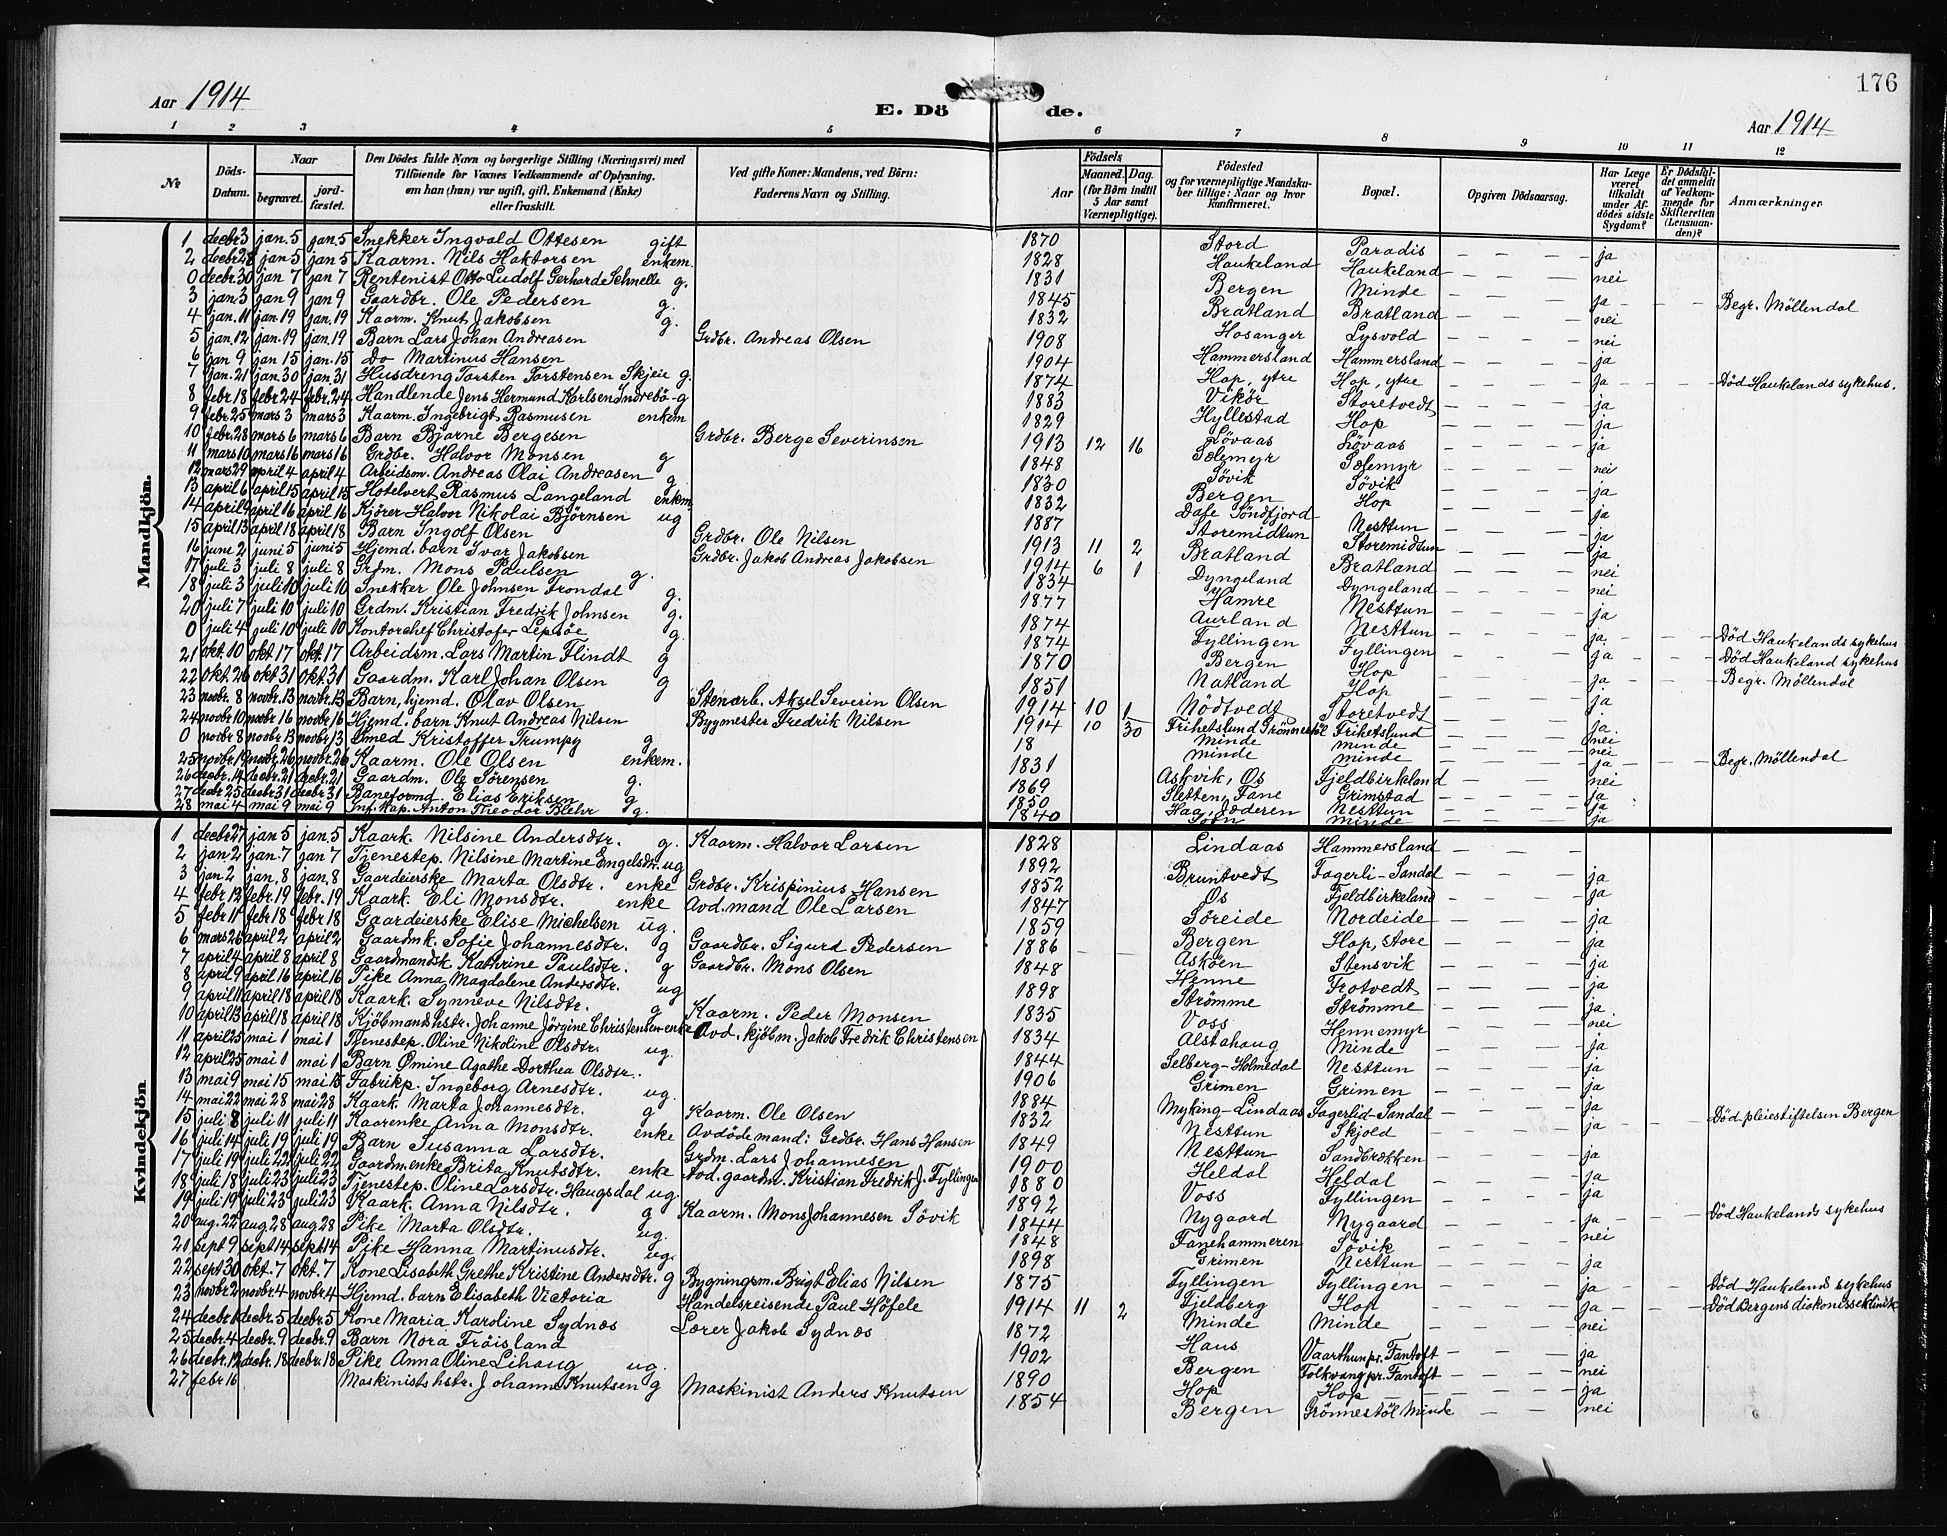 176
Aar 1914
E. Dö de.
Aar 1914
1 2 3 4 5 6 7 8 9 10 11 12
№
Döds-Datum.
Naar
begravet.
jord-fæstet.
Den Dödes fulde Navn og borgerlige Stilling (Næringsvei) med
Tilføiende for Voxnes Vedkommende af Oplysning,
om han (hun) var ugift, gift, Enkemand (Enke)
eller fraskilt.
Ved gifte Koner: Mandens, ved Börn:
Faderens Navn og Stilling.
Födsels
Aar
Maaned. Dag.
(for Börn indtil
5 Aar samt
Værnepligtige).
Födested
og for værnepligtige Mandska-
ber tillige: Naar og hvor
konfirmeret.
Bopæl.
Opgiven Dödsaarsag.
Har Læge
været
tilkaldt
under Af-
dödes sidste
Sygdom?
Er Dödsfal-
det anmeldt
af Vedkom-
mende for
Skifteretten
(Lensman-
den)?
Anmærkninger
Mandkjön.
1 decbr 3 jan. 5 jan. 5 Snekker Ingvald Ottesen gift 1870 Stord Paradis ja
2 decbr 28 jan 5 jan 5 Kaarm. Nils Haktorsen enkem. 1828 Haukeland Haukeland nei
0 decbr. 30 jan 7 jan 7 Rentenist Otto Ludolf Gerhard Schnelle g. 1831 Bergen Minde ja Begr. Möllendal
3 jan. 3 jan 9 jan 9 Gaardbr. Ole Pedersen g. 1845 Bratland Bratland nei
4 jan. 11 jan 19 jan. 19 Kaarm. Knut Jakobsen g. 1832 Hosanger Lysvold nei
5 jan. 12 jan. 19 jan. 19 Barn Lars Johan Andreasen Grdbr. Andreas Olsen 1908 Hammersland Hammersland ja
6 jan 9 jan 15 jan. 15 Do Martinus Hansen 1904 Hop, ytre Hop, ytre ja Död Haukelands sykehus.
7 jan. 21 jan. 30 jan. 31 Husdreng Torsten Torstensen Skjeie g. 1874 Vikör Storetvedt ja
8 febr 18 febr 24 febr. 24 Handlende Jens Hermund Karlsen Indrebö g 1883 Hyllestad Hop ja
9 febr. 25 mars 3 mars 3 Kaarm. Ingebrigt Rasmusen enkem 1829 Lövaas Lövaas ja
10 febr. 28 mars 6 mars 6 Barn Bjarne Bergesen Grdbr. Berge Severinsen 1913 12 16 Solemyr Solemyr nei
11 mars 10 mars 16 mars 16 Grdbr. Halvor Monsen g 1848 Sövik Sövik ja
12 mars 29 april 4 april 4 Arbeidsm. Andreas Olai Andreasen g. 1830 Bergen Hop ja
13 april 6 april 15 april 15 Hotelvert Rasmus Langeland enkem 1832 Dale Söndfjord Nesttun ja
14 april 9 april 16 april 16 Kjörer Halvor Nikolai Björnsen ug 1887 Storemidtun Storemidtun ja
15 april 13 april 18 april 18 Barn Ingolf Olsen Grdbr. Ole Nilsen 1913 11 2 Bratland Bratland nei
16 june 2 juni 5 juni 5 Hjemd. barn Ivar Jakobsen Grdbr. Jakob Andreas Jakobsen 1914 6 1 Dyngeland Dyngeland nei
17 juli 3 juli 8 juli 8 Grdm. Mons Paulsen g. 1834 Hamre Nesttun ja
18 juli 3 juli 10 juli 10 Snekker Ole Johnsen Trondal g. 1877 Aurland Nesttun ja Död Haukelands sykehus
20 juli 7 juli 10 juli 10 Grdm. Kristian Fredrik Johnsen g. 1874 Fyllingen Fyllingen ja Död Haukeland sykehus
0 juli 4 juli 10 juli 10 Kontorchef Christofer Lepsöe g. 1874 Bergen Hop ja Begr. Möllendal
21 okt. 10 okt 17 okt. 17 Arbeidsm. Lars Martin Flindt g 1870 Natland Hop ja
22 okt. 26 okt 31 okt. 31 Gaardm. Karl Johan Olsen g 1851 Nödtvedt Storetvedt ja
23 novbr. 8 novbr. 13 novbr. 13 Barn, hjemd. Olav Olsen Stenarb. Aksel Severin Olsen 1914 10 1 Frihetslund Grönnestöl Frihetslund nei
24 novbr. 10 novbr 16 novbr. 16 Hjemd. barn Knut Andreas Nilsen Bygmester Fredrik Nilsen 1914 10 30 Minde minde nei
0 novbr 8 novbr 13 novbr 13 Smed Kristoffer Trumpy g 18 minde minde ja Begr. Möllendal
25 novbr. 19 novbr. 26 novbr 26 Kaarm. Ole Olsen enkem. 1831 Askvik, Os Fjeldbirkland nei
26 decbr. 14 decbr. 21 decbr. 21 Gaardm. Ole Sörensen g. 1869 Sletten, Fane Grimstad ja
27 decbr 25 decbr 31 decbr 31 Baneformd. Elias Eriksen g 1850 Haa, Jæderen Nesttun ja
28 mai 4 mai 9 mai 9 Inf. Kap. Anton Theodor Blehr g. 1840 minde ja
Kvindekjön
1 decbr 27 jan. 5 jan. 5 Kaark. Nilsine Andersdtr. g. Kaarm. Halvor Larsen 1828 Lindaas Hammersland
2 jan 2 jan. 7 jan 7 Tjenestep. Nilsine Martine Engelsdtr. ug 1892 Bruntvedt Fagerli-Sandal ja
3 jan. 2 jan. 8 jan. 8 Gaardeierske Marta Olsdtr. enke Grdbr. Krispinius Hansen 1852 Os Fjeldbirkeland ja
4 febr 12 febr. 19 febr. 19 Kaark. Eli Monsdtr. enke Avd. mand Ole Larsen 1847 Söreide Nordeide ja
5 febr 11 febr 18 febr 18 Gaardeierske Elise Michelsen ug. 1859 Bergen Hop, store ja
6 mars 26 april 2 april 2 Gaardmk. Sofie Johannesdtr. g Gaardbr. Sigurd Pedersen 1886 Asköen Stensvik ja
7 april 4 april 8 april 8 Gaardmandsk Kathrine Paulsdtr. g Gaardbr. Mons Olsen 1848 Henne Trotvedt ja
8 april 9 april 16 april 16 Pike Anna Magdalene Andersdtr. ug 1898 Strömme Strömme ja
9 april 11 april 18 april 18 Kaark. Synneve Nilsdtr. g Kaarm. Peder Monsen 1835 Voss Hennemyr nei
10 april 13 april 18 april 18 Kjöbmandshstr. Johanne Jörgine Christensen enke Avd. kjöbm. Jakob Fredrik Christensen 1834 Alstahaug Minde ja
11 april 25 mai 1 mai 1 Tjenestep. Oline Nikoline Olsdtr. ug. 1844 Selberg-Holmedal Nesttun ja
12 april 25 mai 1 mai 1 Barn Ømine Agathe Dorthea Olsdtr. 1906 Grimen Grimen ja
13 mai 9 mai 15 mai 15 Fabrikp. Ingeborg Arnesdtr. ug. 1884 Myking-Lindaas Fagerlid-Sandal ja Död pleiestiftelsen Bergen
14 mai 22 mai 28 mai 28 Kaark. Marta Johannesdtr. g Kaarm. Ole Olsen 1832 Nesttun Skjold ja
15 juli 8 juli 11 juli 11 Kaarenke Anna Monsdtr. enke Avdöde mand: Grdbr. Hans Hansen 1849 Nesttun Sandbrekken ja
16 juli 14 juli 19 juli 19 Barn Susanna Larsdtr. Grdm. Lars Johannesen 1900 Heldal Heldal ja
17 juli 19 juli 22 juli 22 Gaardm. enke Brita Knutsdtr. enke Avd. gaardm. Kristian Fredrik J. Fyllingen 1880 Voss Fyllingen ja
18 juli 18 juli 23 juli 23 Tjenestep. Oline Larsdtr. Haugsdal ug. 1892 Nygaard Nygaard ja Död Haukelands sykehus
19 juli 19 juli 23 juli 23 Kaark. Anna Nilsdtr. g Kaarm. Mons Johannesen Sövik 1844 Fanehammeren Sövik nei
20 aug. 22 aug 28 aug. 28 Pike Marta Olsdtr. ug. 1848 Grimen Nesttun ja
21 sept 9 sept 14 sept 14 Pike Hanna Martinusdtr. ug. 1898 Fyllingen Fyllingen ja Död Haukeland sykehus
22 sept 30 okt. 7 okt. 7 Kone Lisabeth Grethe Kristine Andersdtr. g Bygningsm. Brigt Elias Nilsen 1875 Fjeldberg Hop ja Död Bergens diakonisseklinik
23 novbr 2 novbr 4 novbr 4 Hjemd. barn Elisabeth Victoria Handelsreisende Paul Höfele 1914 11 2 Minde Minde nei
24 decbr. 1 decbr. 5 decbr. 5 Kone Maria Karoline Sydnæs Lærer Jakob Sydnæs 1872 Haus Vaarthun pr. Fantoft ja
25 decbr. 4 decbr. 9 decbr. 9 Barn Nora Fröisland 1902 Bergen Folkvang pr. Fantoft nei
26 decbr. 12 decbr. 18 decbr. 18 Pike Anna Oline Lihaug ug. 1890 Hop Hop ja
27 febr 16 Maskinisthstr. Johanne Knutsen g Maskinist Anders Knutsen 1854 Bergen Grönnestöl Minde nei